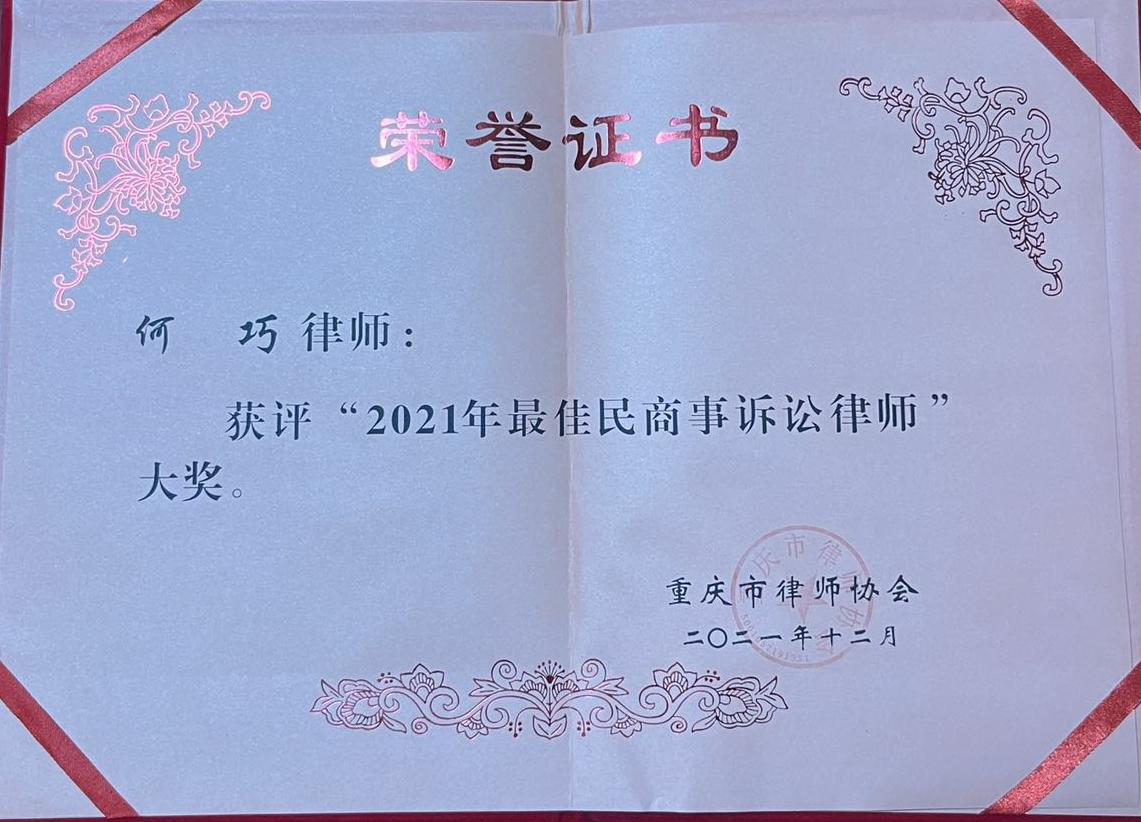 荣誉证书
何 巧 律师：
获评“2021年最佳民商事诉讼律师”
大奖。
重庆市律师协会
二〇二一年十二月
庆市律师协会